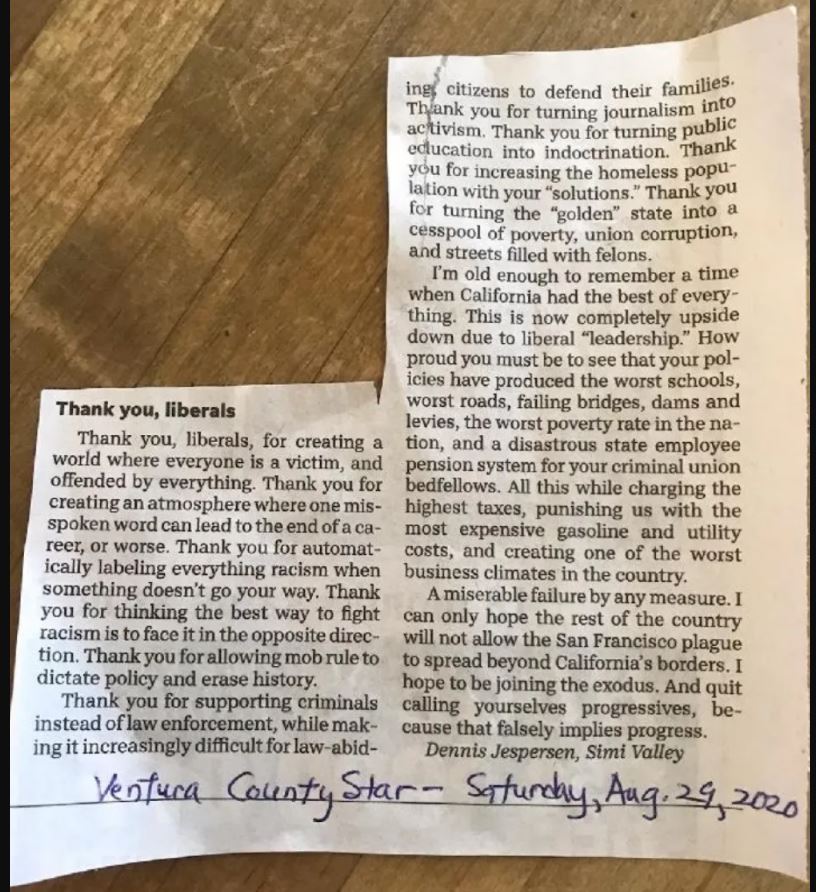 Thank you, liberals
Thank you, liberals, for creating a
world where everyone is a victim, and
offended by everything. Thank you for
creating an atmosphere where one mis-
spoken word can lead to the end of a ca-
reer, or worse. Thank you for automat-
ically labeling everything racism when
something doesn't go your way. Thank
you for thinking the best way to fight
racism is to face it in the opposite direc-
tion. Thank you for allowing mob rule to
dictate policy and erase history.
Thank you for supporting criminals
instead of law enforcement, while mak-
ing it increasingly difficult for law-abid-
ing citizens to defend their families.
Thank you for turning journalism into
activism. Thank you for turning public
education into indoctrination. Thank
you for increasing the homeless popu-
lation with your “solutions.” Thank you
for turning the “golden” state into a
cesspool of poverty, union corruption,
and streets filled with felons.
I'm old enough to remember a time
when California had the best of every-
thing. This is now completely upside
down due to liberal “leadership.” How
proud you must be to see that your pol-
icies have produced the worst schools,
worst roads, failing bridges, dams and
levies, the worst poverty rate in the na-
tion, and a disastrous state employee
pension system for your criminal union
bedfellows. All this while charging the
highest taxes, punishing us with the
most expensive gasoline and utility
costs, and creating one of the worst
business climates in the country.
A miserable failure by any measure. I
can only hope the rest of the country
will not allow the San Francisco plague
to spread beyond California's borders. I
hope to be joining the exodus. And quit
calling yourselves progressives, be-
cause that falsely implies progress.
Dennis Jespersen, Simi Valley
Ventura County Star - Saturday, Aug. 29, 2020